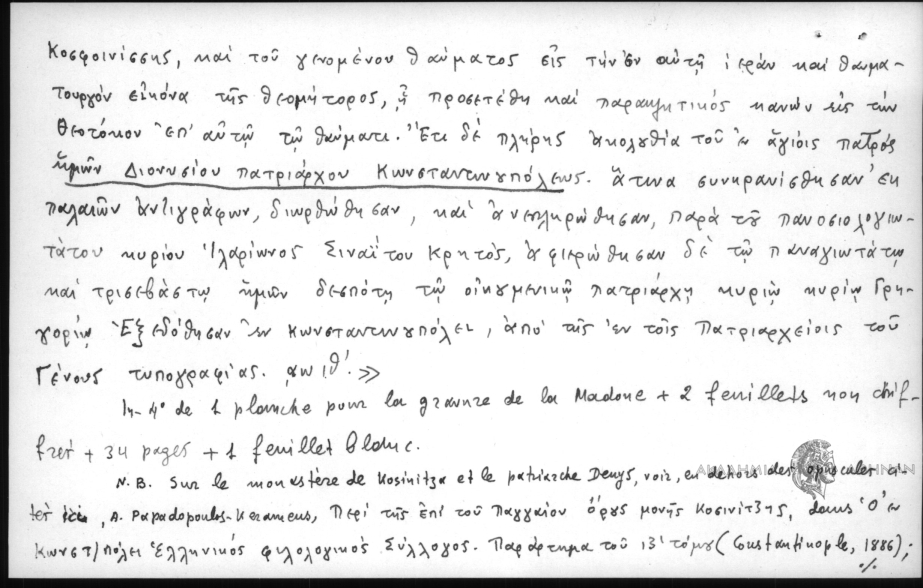 Κοσφοινίσσης, καὶ τοῦ γενομένου θαύματος εἰς τὴν ἐν αὐτῇ ἱερὰν καὶ θαυμα-
τουργὸν εἰκόνα τῆς θεομήτορος, ᾗ προσετέθη καὶ παρακλητικὸς κανὼν εἰς τὴν
Θεοτόκον ἐπ' αὐτῷ τῷ θαύματι. Ἔτι δὲ πλήρης ἀκολουθία τοῦ ἐν ἁγίοις πατρὸς
ἡμῶν Διονυσίου πατριάρχου Κωνσταντινουπόλεως. ἅτινα συνηρανίσθησαν ἐκ
παλαιῶν ἀντιγράφων, διωρθώθησαν, καὶ ἀνεπληρώθησαν, παρὰ τοῦ πανοσιολογιω-
τάτου κυρίου Ἱλαρίωνος Σιναΐτου Κρητός, ἀφιερώθησαν δὲ τῷ παναγιωτάτῳ
καὶ τρισεβάστῳ ἡμῶν δεσπότῃ τῷ οἰκουμενικῷ πατριάρχῃ κυρίῳ κυρίῳ Γρη-
γορίῳ Ἐξεδόθησαν ἐν Κωνσταντινουπόλει, ἀπὸ τῆς ἐν τοῖς Πατριαρχείοις τοῦ
Γένους τυπογραφίας. ͵αωιθ΄. »
In-4° de 1 planche pour la gravure de la Madone + 2 feuillets non chif-
frés + 34 pages + 1 feuillet blanc.
N.B. Sur le monastère de Kosinitza et le patriarche Denys, voir, en dehors des opuscules ci-
tés, A. Papadopoulos-Kerameus, Περὶ τῆς ἐπὶ τοῦ Παγγαίου ὄρους μονῆς Κοσινίτζης, dans Ὁ ἐν
Κωνστ/πόλει Ἑλληνικὸς φιλολογικὸς Σύλλογος. Παράρτημα τοῦ ΙΖ' τόμου (Constantinople, 1886);
%